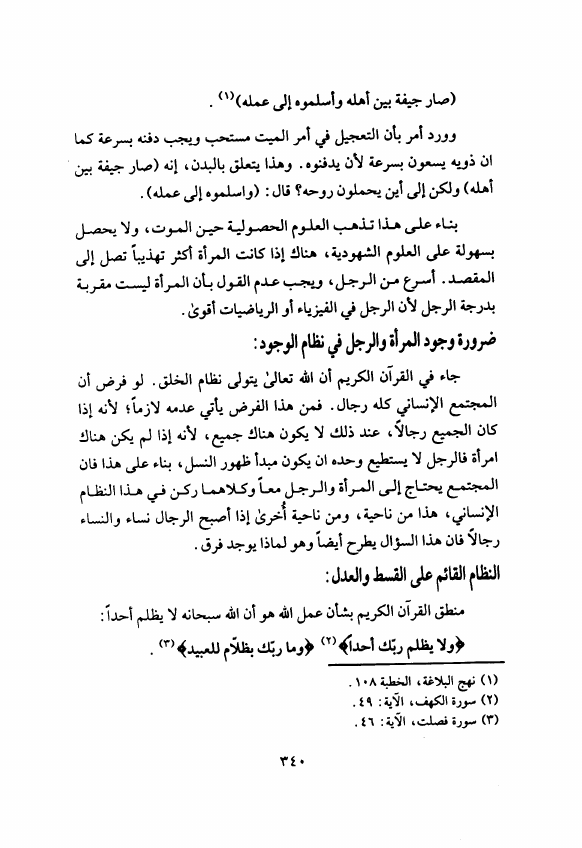 (صار جيفة بين أهله وأسلموه إلى عمله)(١) .
وورد أمر بأن التعجيل في أمر الميت مستحب ويجب دفنه بسرعة كما
ان ذويه يسعون بسرعة لأن يدفنوه. وهذا يتعلق بالبدن، إنه (صار جيفة بين
أهله) ولكن إلى أين يحملون روحه؟ قال: (واسلموه إلى عمله).
بناء على هذا تذهب العلوم الحصولية حين الموت، ولا يحصل
بسهولة على العلوم الشهودية، هناك إذا كانت المرأة أكثر تهذيباً تصل إلى
المقصد. أسرع من الرجل، ويجب عدم القول بأن المرأة ليست مقربة
بدرجة الرجل لأن الرجل في الفيزياء أو الرياضيات أقوىٰ.
ضرورة وجود المرأة والرجل في نظام الوجود:
جاء في القرآن الكريم أن الله تعالىٰ يتولى نظام الخلق. لو فرض أن
المجتمع الإنساني كله رجال. فمن هذا الفرض يأتي عدمه لازماً؛ لأنه إذا
كان الجميع رجالاً، عند ذلك لا يكون هناك جميع، لأنه إذا لم يكن هناك
امرأة فالرجل لا يستطيع وحده ان يكون مبدأ ظهور النسل، بناء على هذا فان
المجتمع يحتاج إلى المرأة والرجل معاً وكلاهما ركن في هذا النظام
الإنساني، هذا من ناحية، ومن ناحية أُخرىٰ إذا أصبح الرجال نساء والنساء
رجالاً فان هذا السؤال يطرح أيضاً وهو لماذا يوجد فرق.
النظام القائم على القسط والعدل:
منطق القرآن الكريم بشأن عمل الله هو أن الله سبحانه لا يظلم أحداً:
﴿ولا يظلم ربّك أحداً﴾(٢) ﴿وما ربّك بظلاّم للعبيد﴾(٣) .
(١) نهج البلاغة، الخطبة ١٠٨.
(٢) سورة الكهف، الآية: ٤٩.
(٣) سورة فصلت، الآية: ٤٦.
٣٤٠